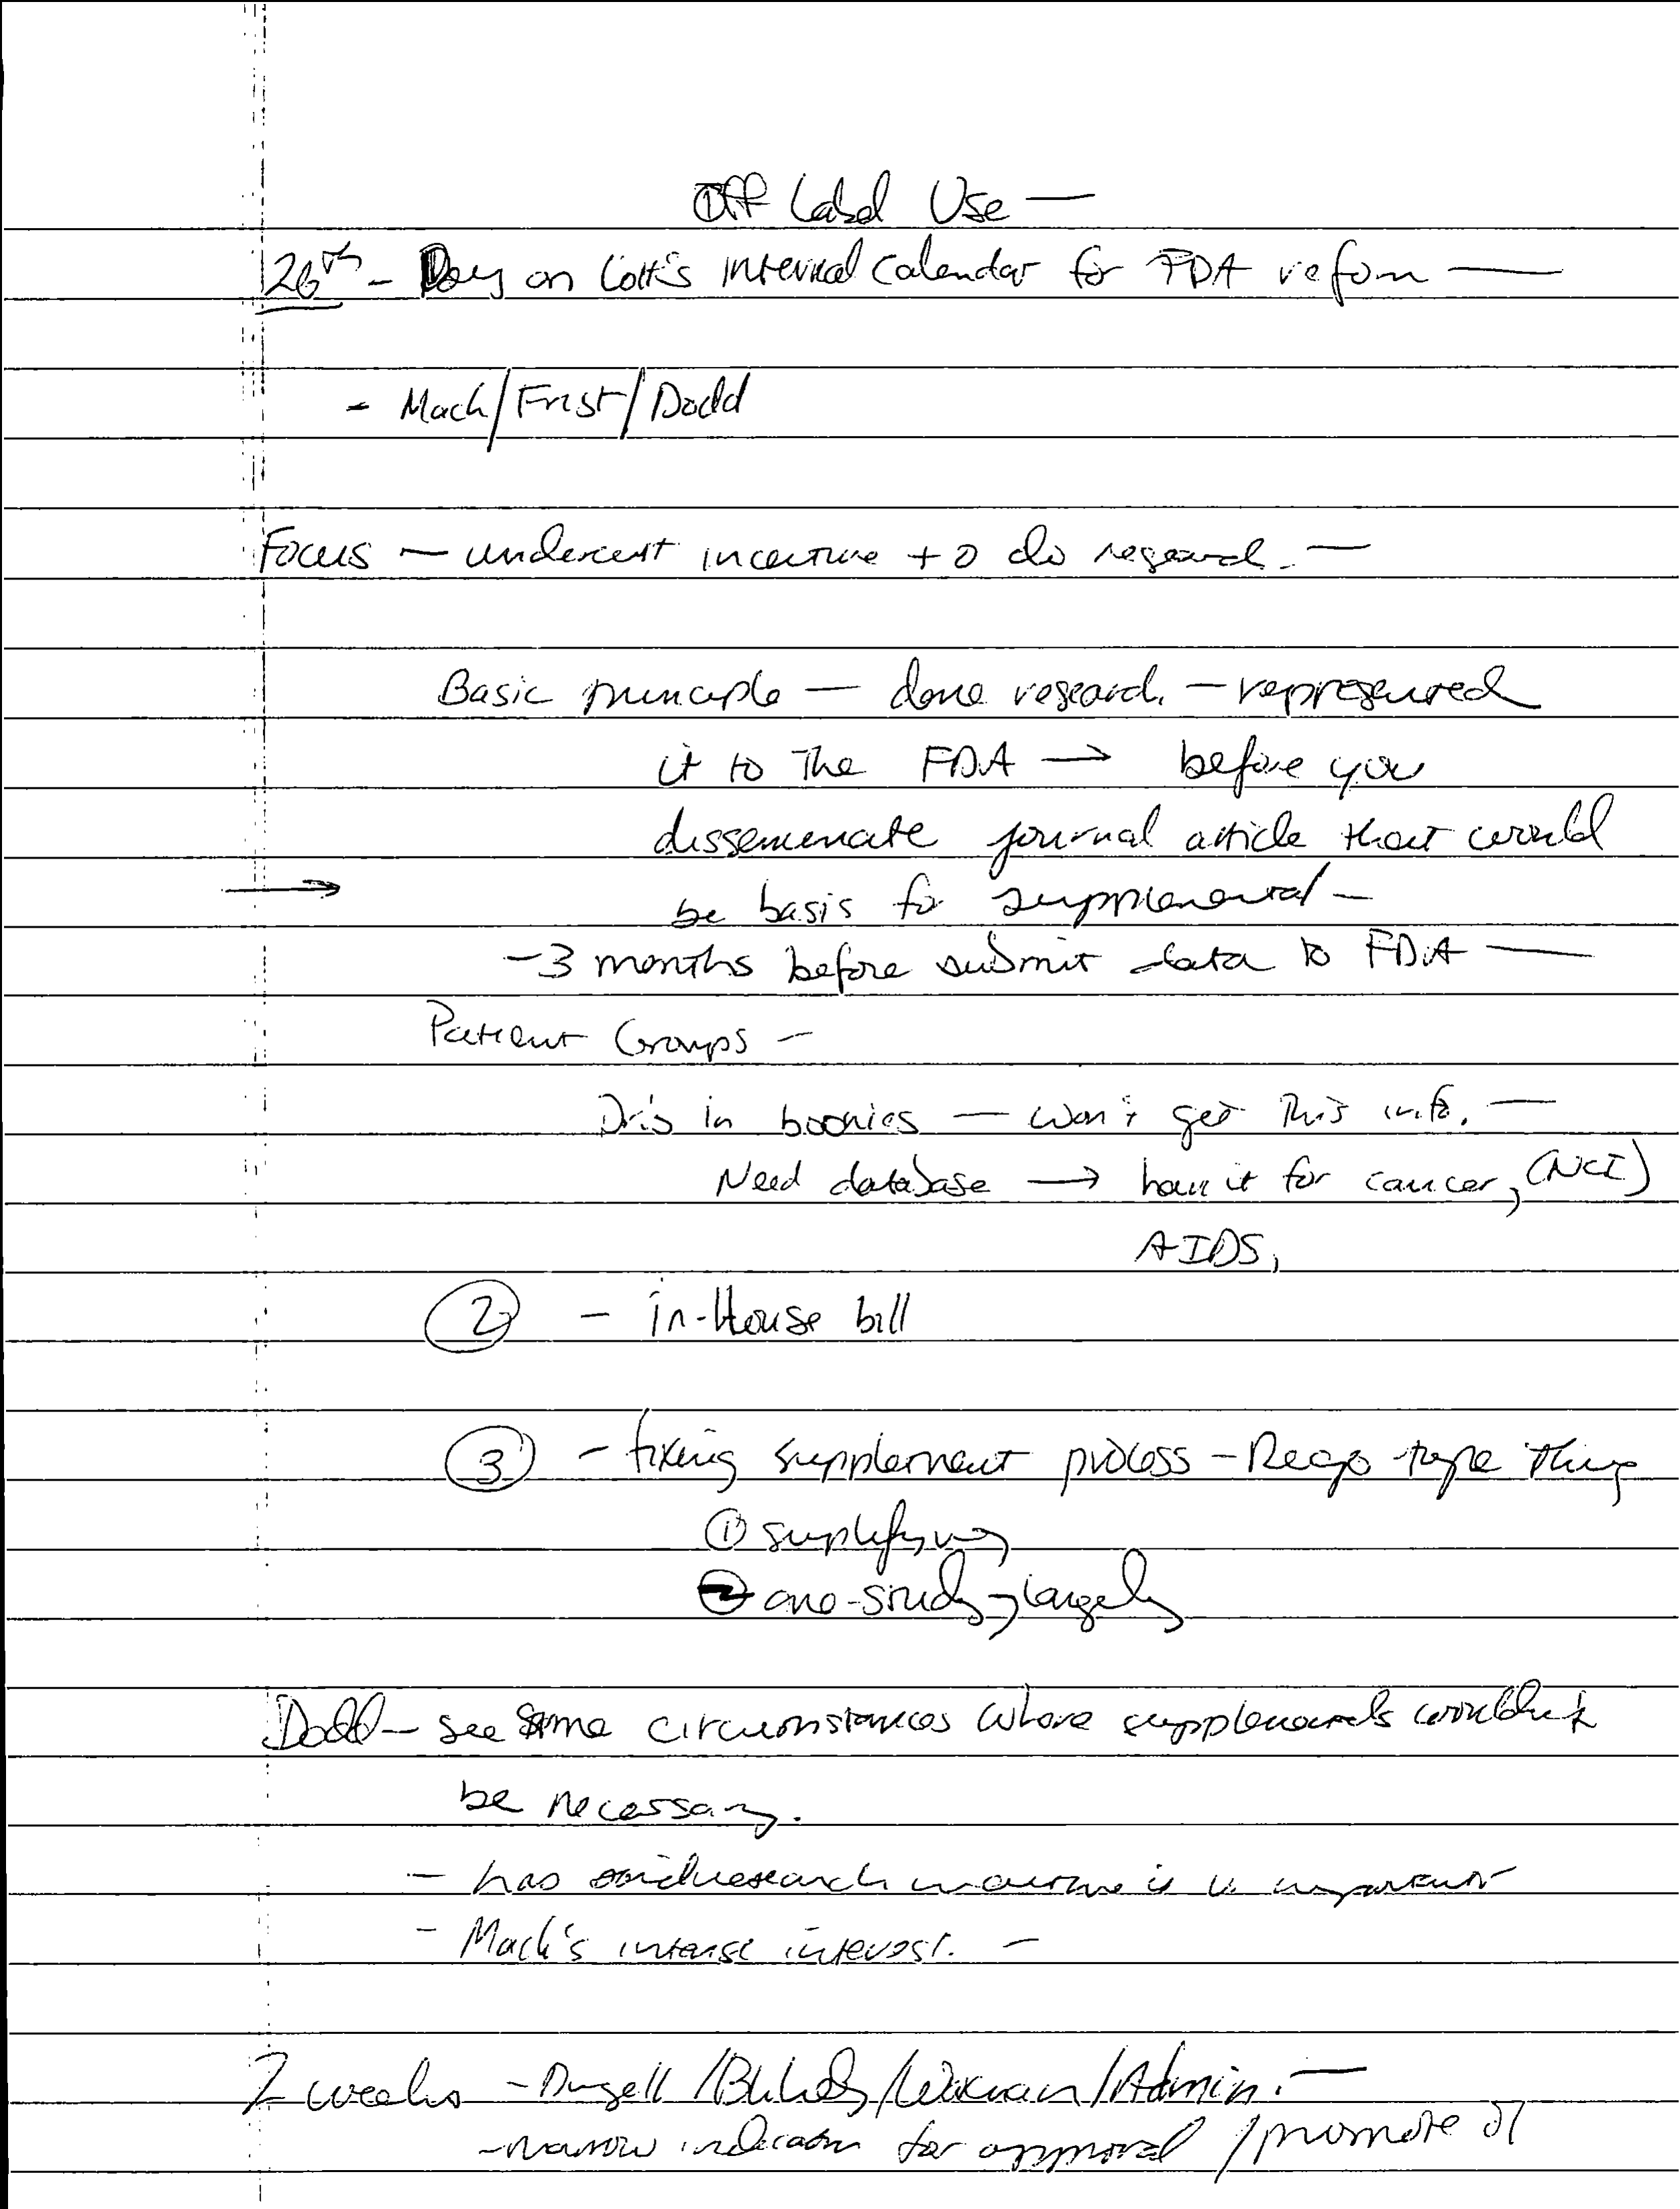 Off Label Use —
26th - Day on Lott's internal calendar for FDA reform —
- Mack/Frist/Dodd
Focus — undercut incentive to do research. —
Basic principle — done research. — represented
it to the FDA → before you
disseminate journal article that would
→ be basis for supplemental —
- 3 months before submit data to FDA —
Patient Groups —
Dr.'s in boonies — won't get this info. —
Need database → have it for cancer, (NCI)
AIDS,
② - in-House bill
③ - fixing supplement process - Rego type thing
① simplifying
② one-study, largely
Dodd — see some circumstances where supplementals wouldn't
be necessary.
- has said research incentive is v. important
- Mack's intense interest. —
2 weeks - Dingell / Bliley / Waxman / Admin. —
- narrow indication for approval / promote